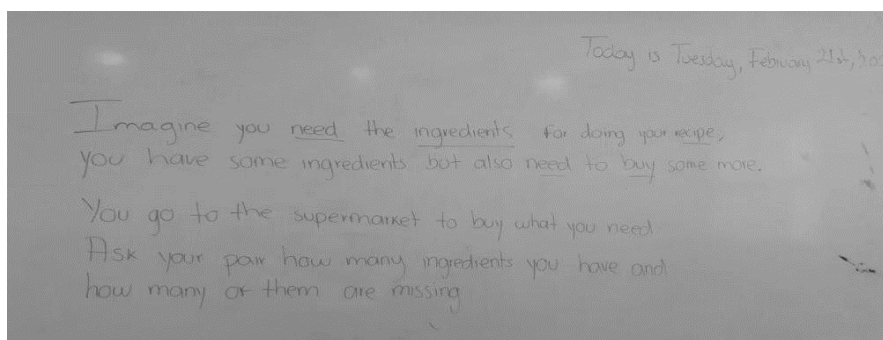 Today is Tuesday, February 21st, 20
Imagine you need the ingredients for doing your recipe,
you have some ingredients but also need to buy some more.
You go to the supermarket to buy what you need
Ask your pair how many ingredients you have and
how many of them are missing